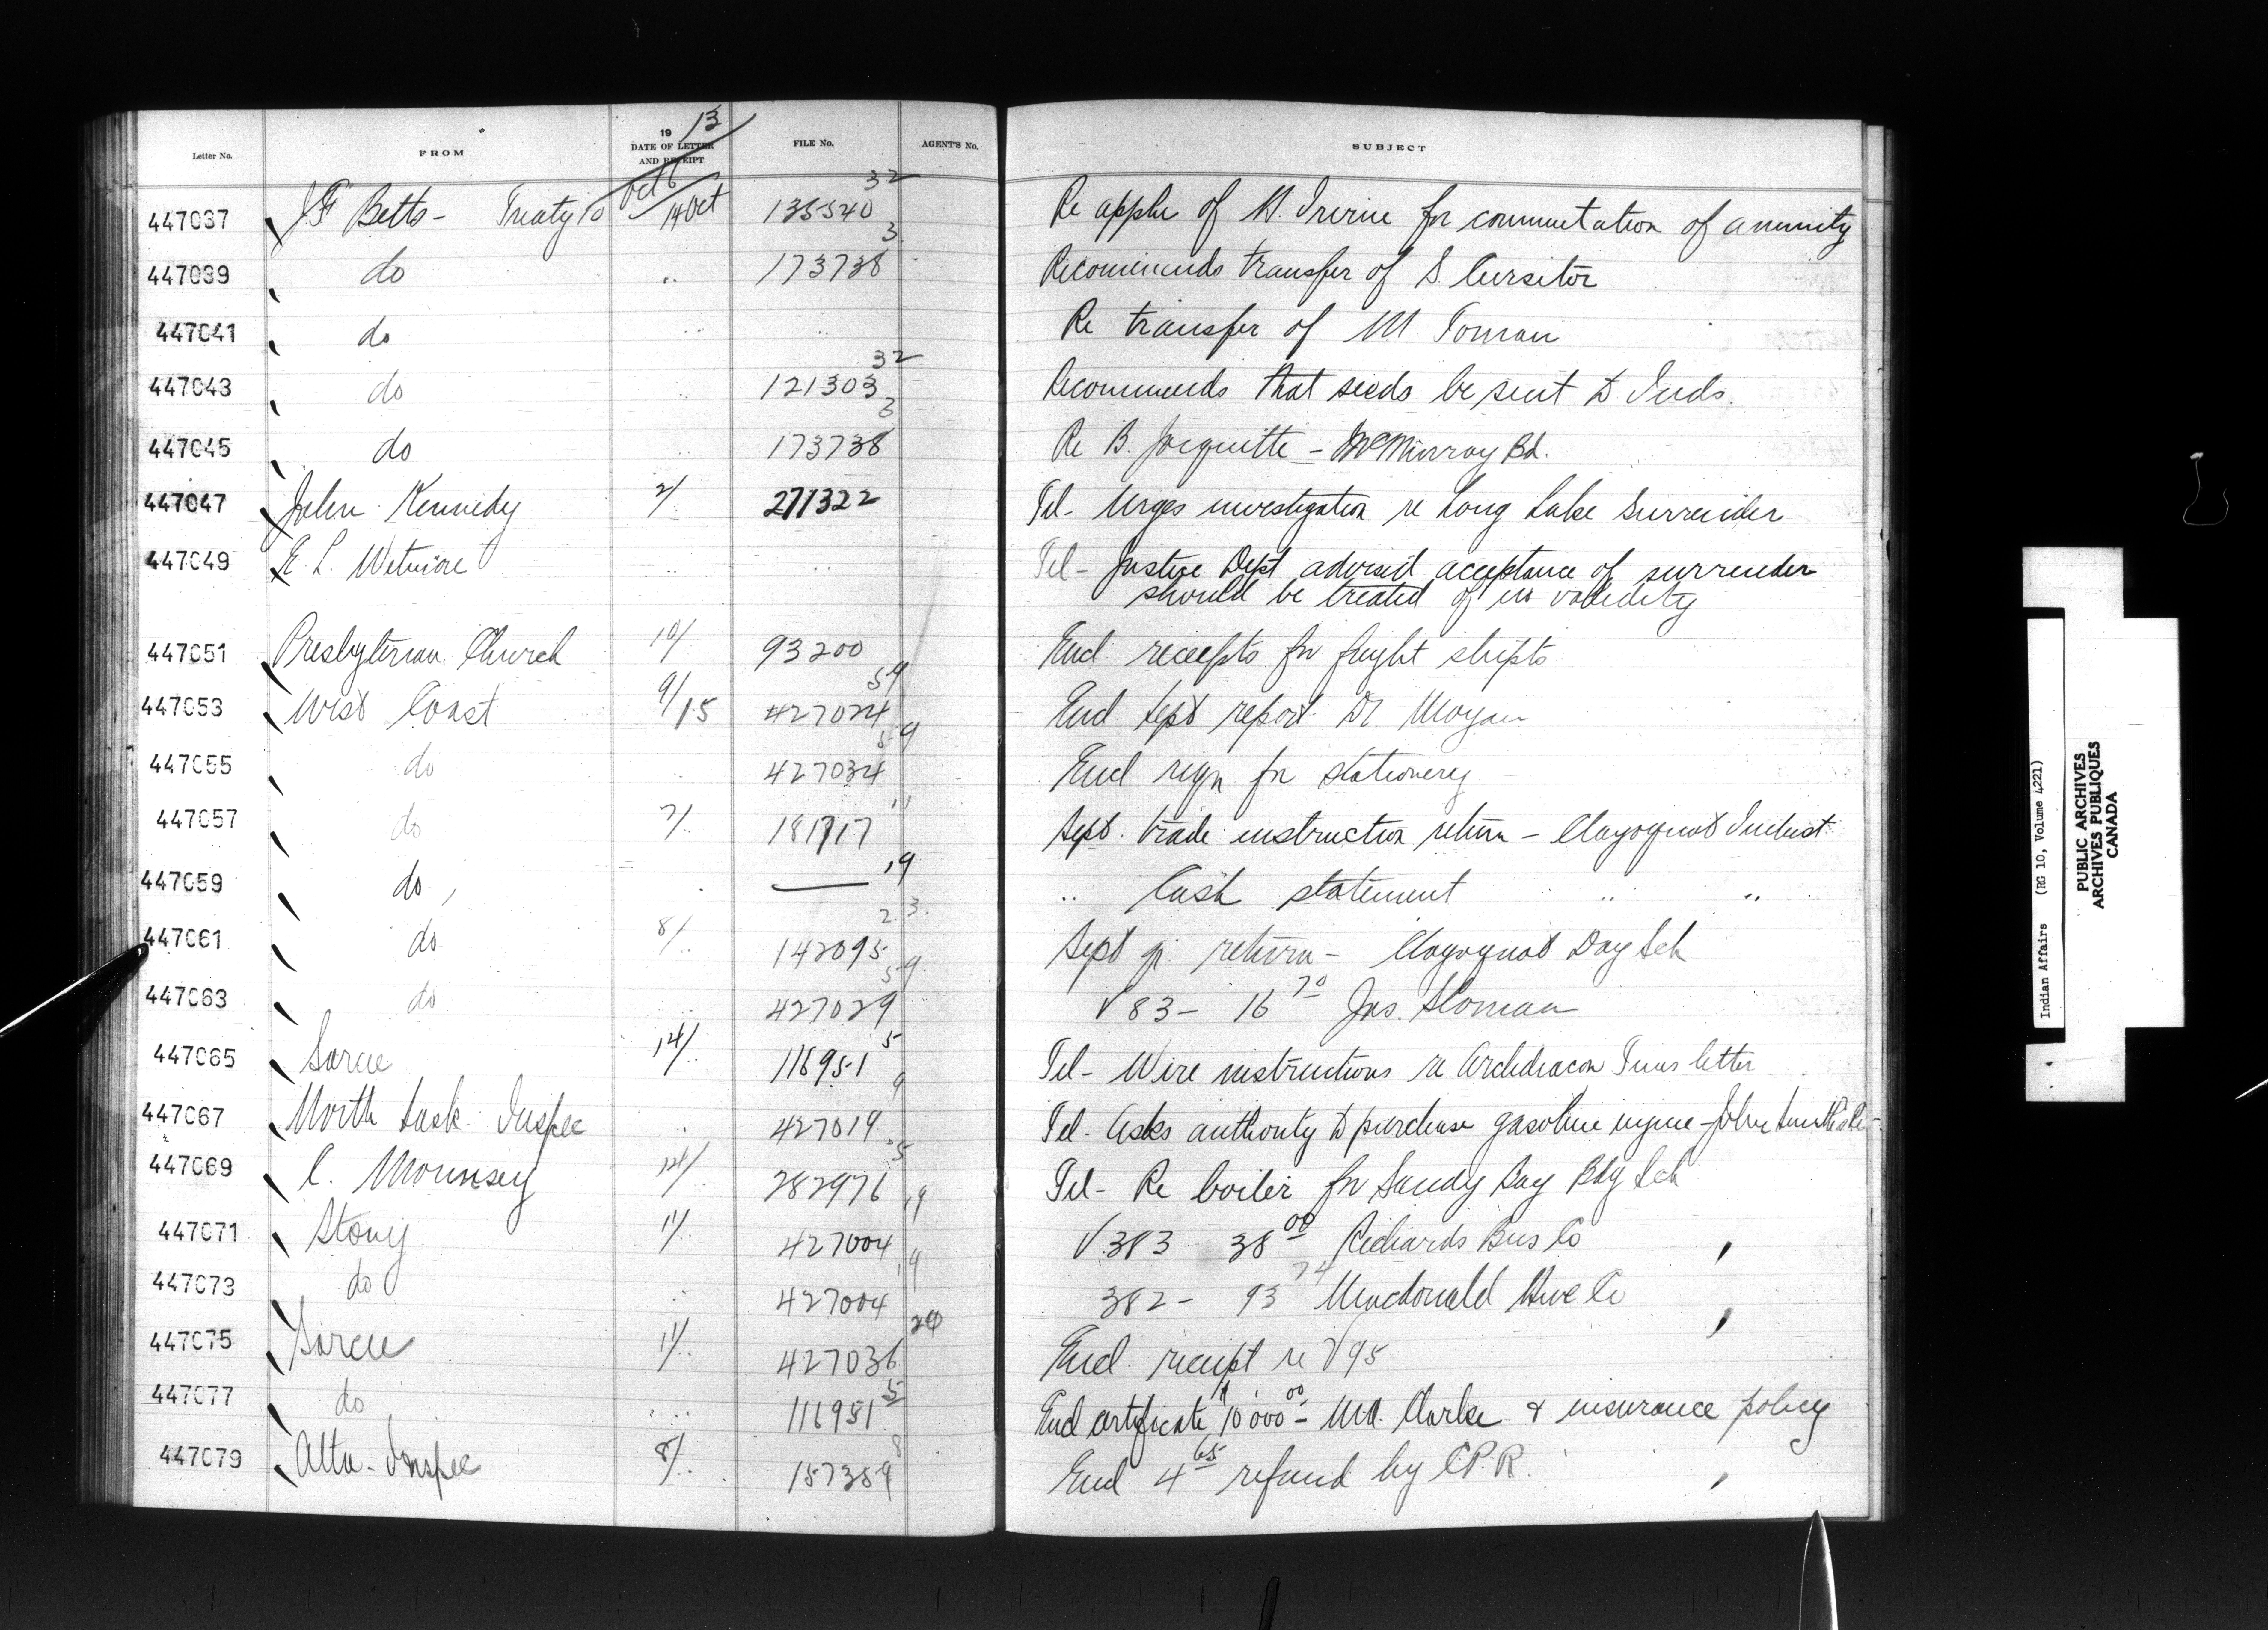 Letter No. FROM 19 13 DATE OF LETTER AND RECEIPT FILE No. AGENT'S No. SUBJECT
447037 J F Betts - Treaty 10 Oct 6 / 14 Oct 135540 32 Re appln of M. Irvine for commutation of annuity
447039 do .. 173738 3 Recommends transfer of S. Cursitor
447041 do .. .. Re transfer of M
447043 do .. 121303 32 Recommends that seeds be sent to Inds.
447045 do .. 173738 3 Re B. - McMurray Bd.
447047 John Kennedy 2/.. 271322 Tel - Urges investigation re Long Lake surrender
447049 E. L. Wetmore .. .. Tel - Justice Dept advised acceptance of surrender
should be treated of no validity
447051 Presbyterian Church 10/.. 93200 Encl receipts for freight shipts
447053 West Coast 9/15 427024 59 Encl Sept report Dr.
447055 do .. 427034 59 Encl reqn for stationery
447057 do 7/.. 181717 11 Sept. trade instruction return - Clayoquot Indust
447059 do .. — 19 .. Cash statement .. ..
447061 do 8/.. 142095 23 Sept qr. return - Clayoquot Day Sch
447063 do .. 427029 59 V 83 - 16 70 Jas. Sloman
447065 Sarcee 14/.. 116951 5 Tel - Wire instructions re Archdeacon Tims letter
447067 North Sask. Inspec .. 427019 9 Tel - Asks authority to purchase gasoline engine - John Smiths
447069 C. Mounsey 14/.. 282976 5 Tel - Re boiler for Sandy Bay Bdg Sch
447071 Stony 11/.. 427004 19 V 383 38 00 Richards Bus Co
447073 do .. 427004 19 382 - 93 74 Macdonald Hwe Co
447075 Sarcee 11/.. 427036 29 Encl. receipt re V 95
447077 do .. 116951 5 Encl certificate 10 000 00 - Clarke & insurance policy
447079 Alta - Inspec 8/.. 157359 8 Encl 4 65 refund by C.P.R.
Indian Affairs (RG 10, Volume 4221)
PUBLIC ARCHIVES
ARCHIVES PUBLIQUES
CANADA